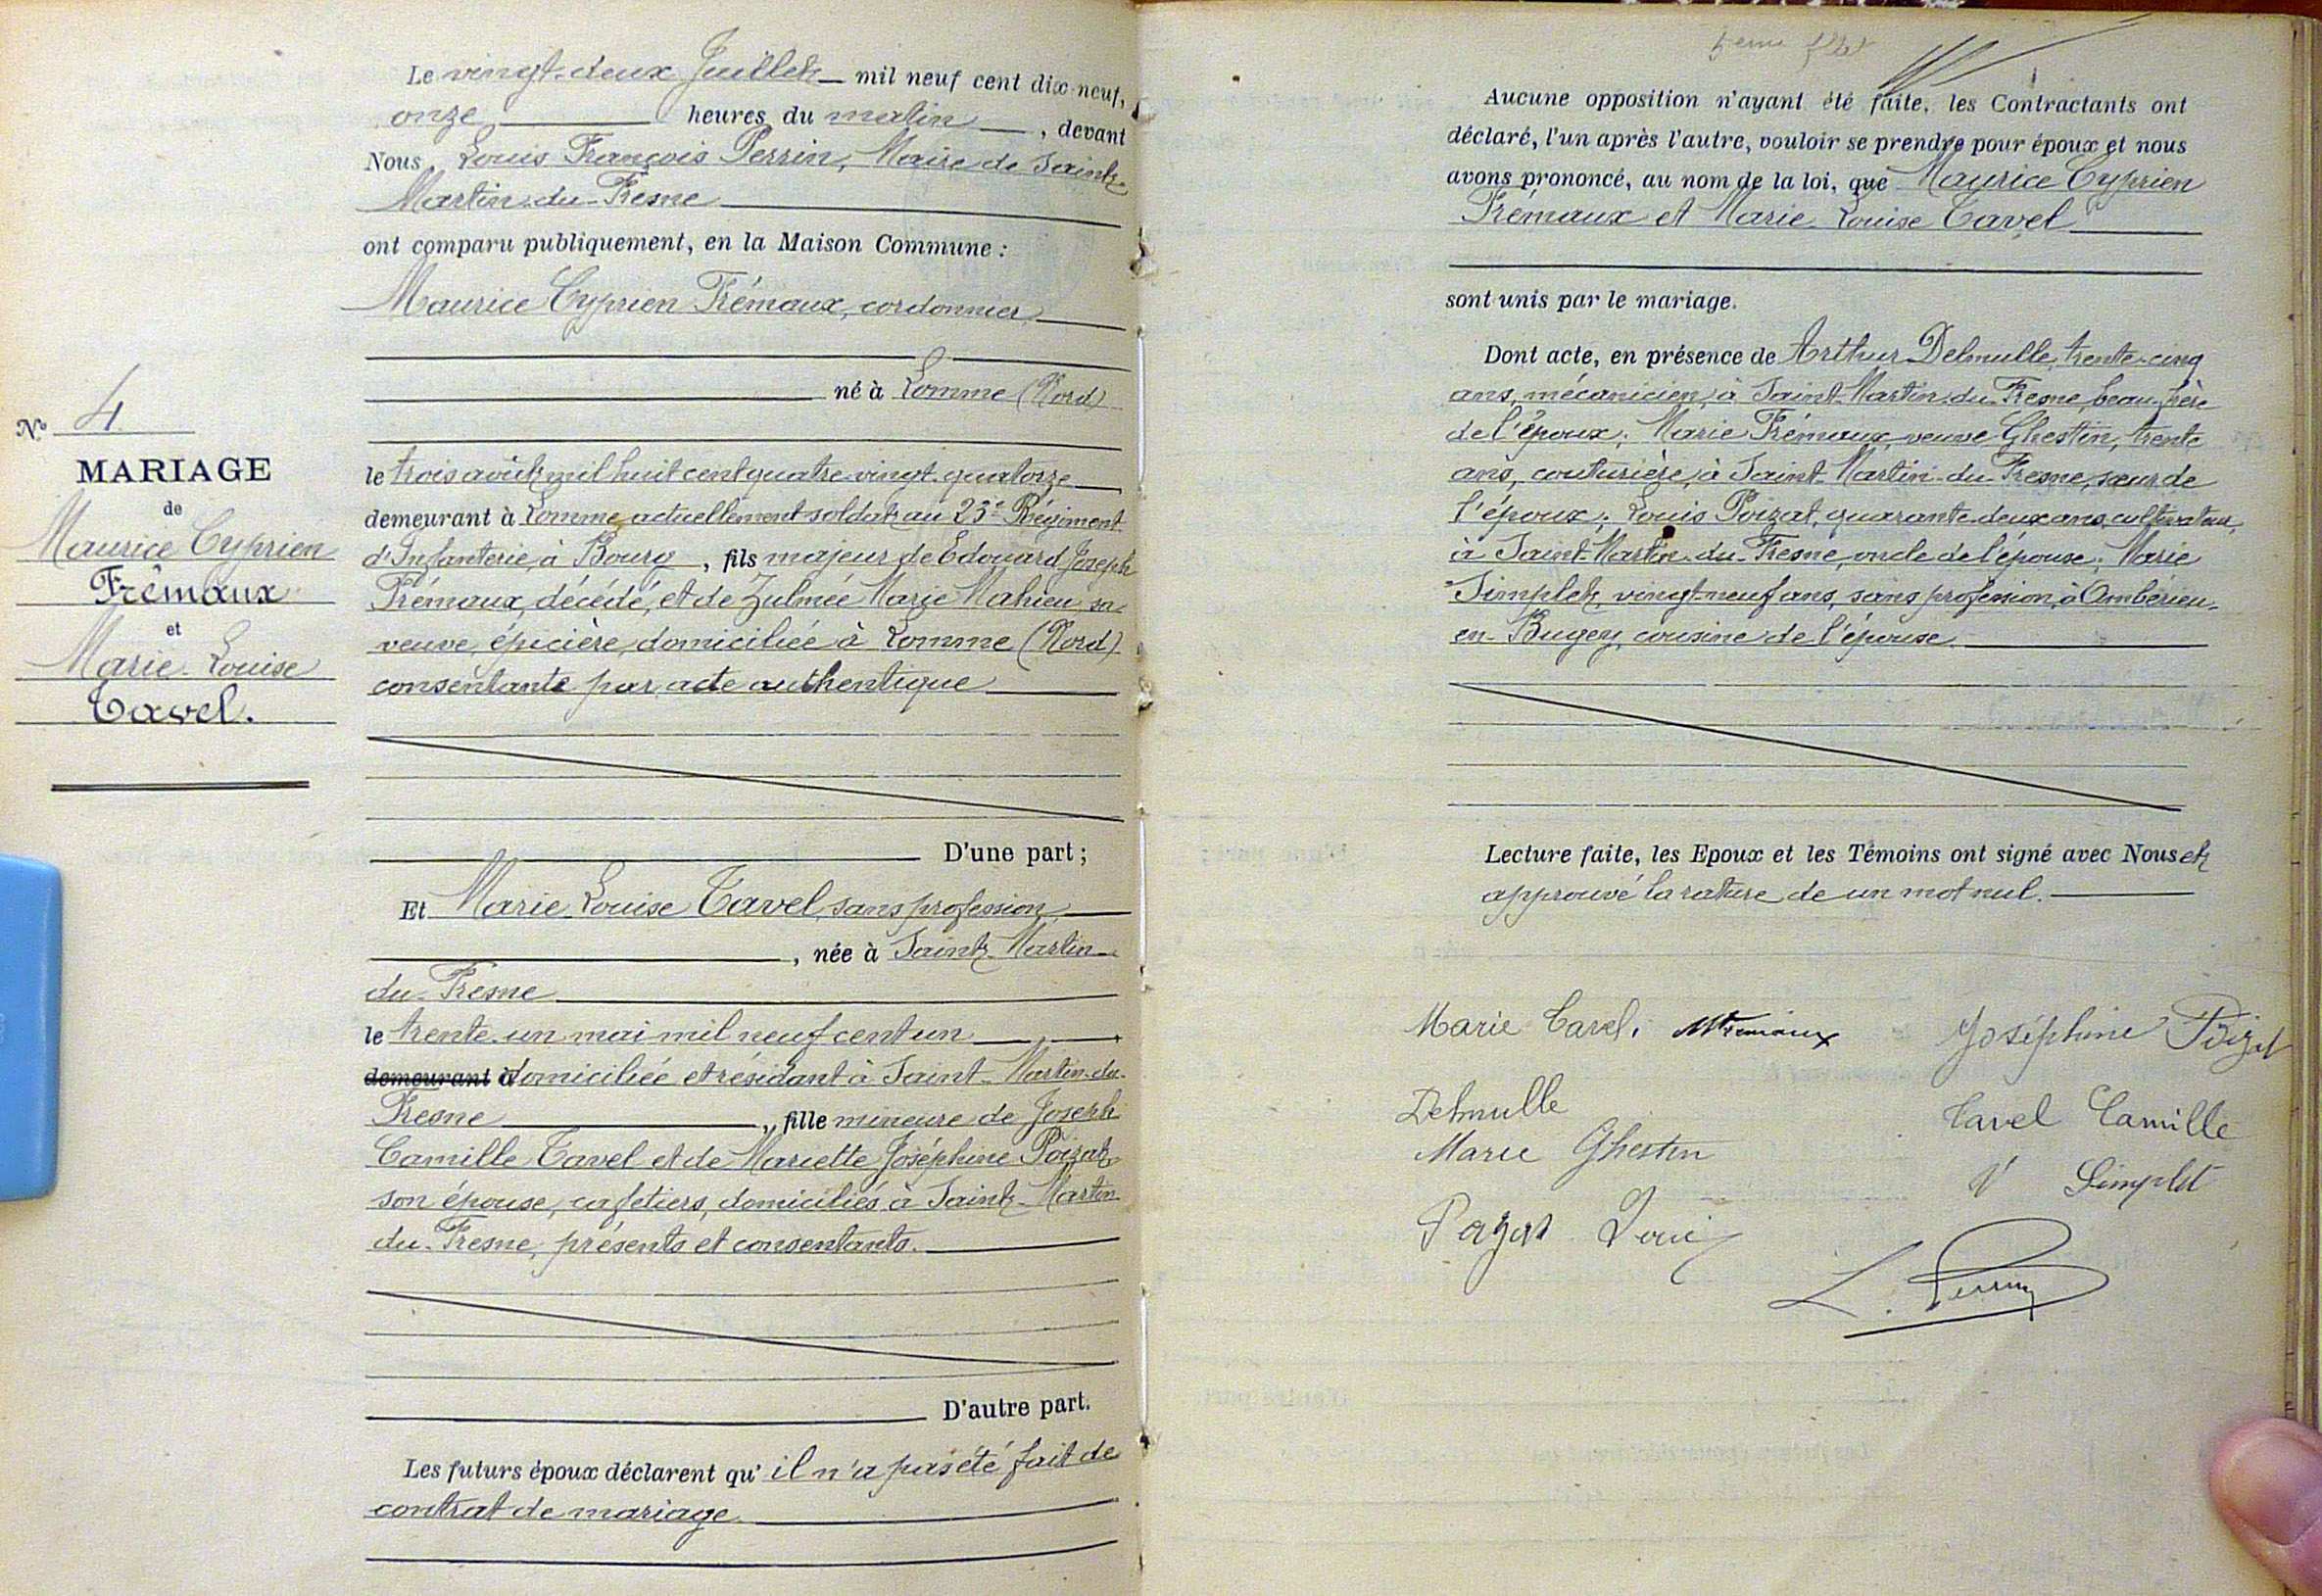 Le vingt-deux Juillet mil neuf cent dix-neuf,
onze heures du matin, devant
Nous, Louis François Perrin, Maire de Saint-
Martin-du-Fresne
ont comparu publiquement, en la Maison Commune :
Maurice Cyprien Frémaux, cordonnier
né à Lomme (Nord)
le trois août mil huit cent quatre-vingt-quatorze
demeurant à Lomme, actuellement soldat au 23e Régiment
d'Infanterie à Bourg, fils majeur de Edouard Joseph
Frémaux, décédé, et de Zulmée Marie Mahieu, sa
veuve, épicière, domiciliée à Lomme (Nord)
consentante par acte authentique
D'une part ;
Et Marie-Louise Tavel, sans profession
, née à Saint-Martin-
du-Fresne
le trente-un mai mil neuf cent un
demeurant à domiciliée et résidant à Saint-Martin-du-
Fresne, fille mineure de Joseph
Camille Tavel et de Mariette Joséphine Poizat
son épouse, cafetiers, domiciliés à Saint-Martin-
du-Fresne, présents et consentants.
D'autre part.
Les futurs époux déclarent qu'il n'a pas été fait de
contrat de mariage
N° 4
MARIAGE
de
Maurice Cyprien
Frémaux
et
Marie-Louise
Tavel.
Aucune opposition n'ayant été faite, les Contractants ont
déclaré, l'un après l'autre, vouloir se prendre pour époux et nous
avons prononcé, au nom de la loi, que Maurice Cyprien
Frémaux et Marie-Louise Tavel
sont unis par le mariage.
Dont acte, en présence de Arthur Delmulle, trente-cinq
ans, mécanicien, à Saint-Martin-du-Fresne, beau-frère
de l'époux ; Marie Frémaux, veuve Ghestin, trente
ans, couturière, à Saint-Martin-du-Fresne, sœur de
l'époux ; Louis Poizat, quarante-deux ans, cultivateur,
à Saint-Martin-du-Fresne, oncle de l'épouse ; Marie
Simplet, vingt-neuf ans, sans profession, à Ambérieu-
en-Bugey, cousine de l'épouse.
Lecture faite, les Epoux et les Témoins ont signé avec Nous et
approuvé la rature de un mot nul.
Marie Tavel. M Fremaux Joséphine Poizat
Delmulle Tavel Camille
Marie Ghestin
Simplet
Louis
L. Perrin